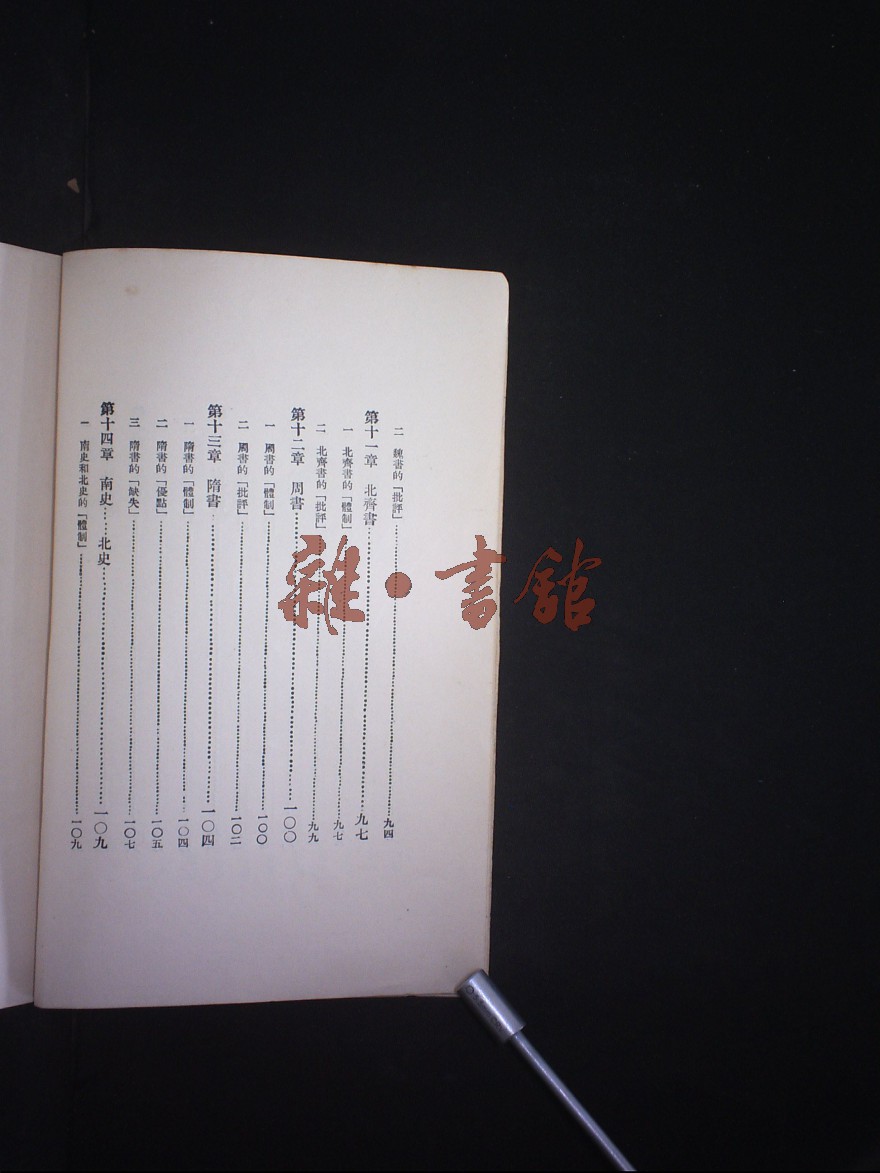 二　魏書的「批評」……九四
第十一章　北齊書……九七
一　北齊書的「體制」……九七
二　北齊書的「批評」……九九
第十二章　周書……一〇〇
一　周書的「體制」……一〇〇
二　周書的「批評」……一〇二
第十三章　隋書……一〇四
一　隋書的「體制」……一〇四
二　隋書的「優點」……一〇五
三　隋書的「缺失」……一〇七
第十四章　南史……北史……一〇九
一　南史和北史的「體制」……一〇九
雜·書館